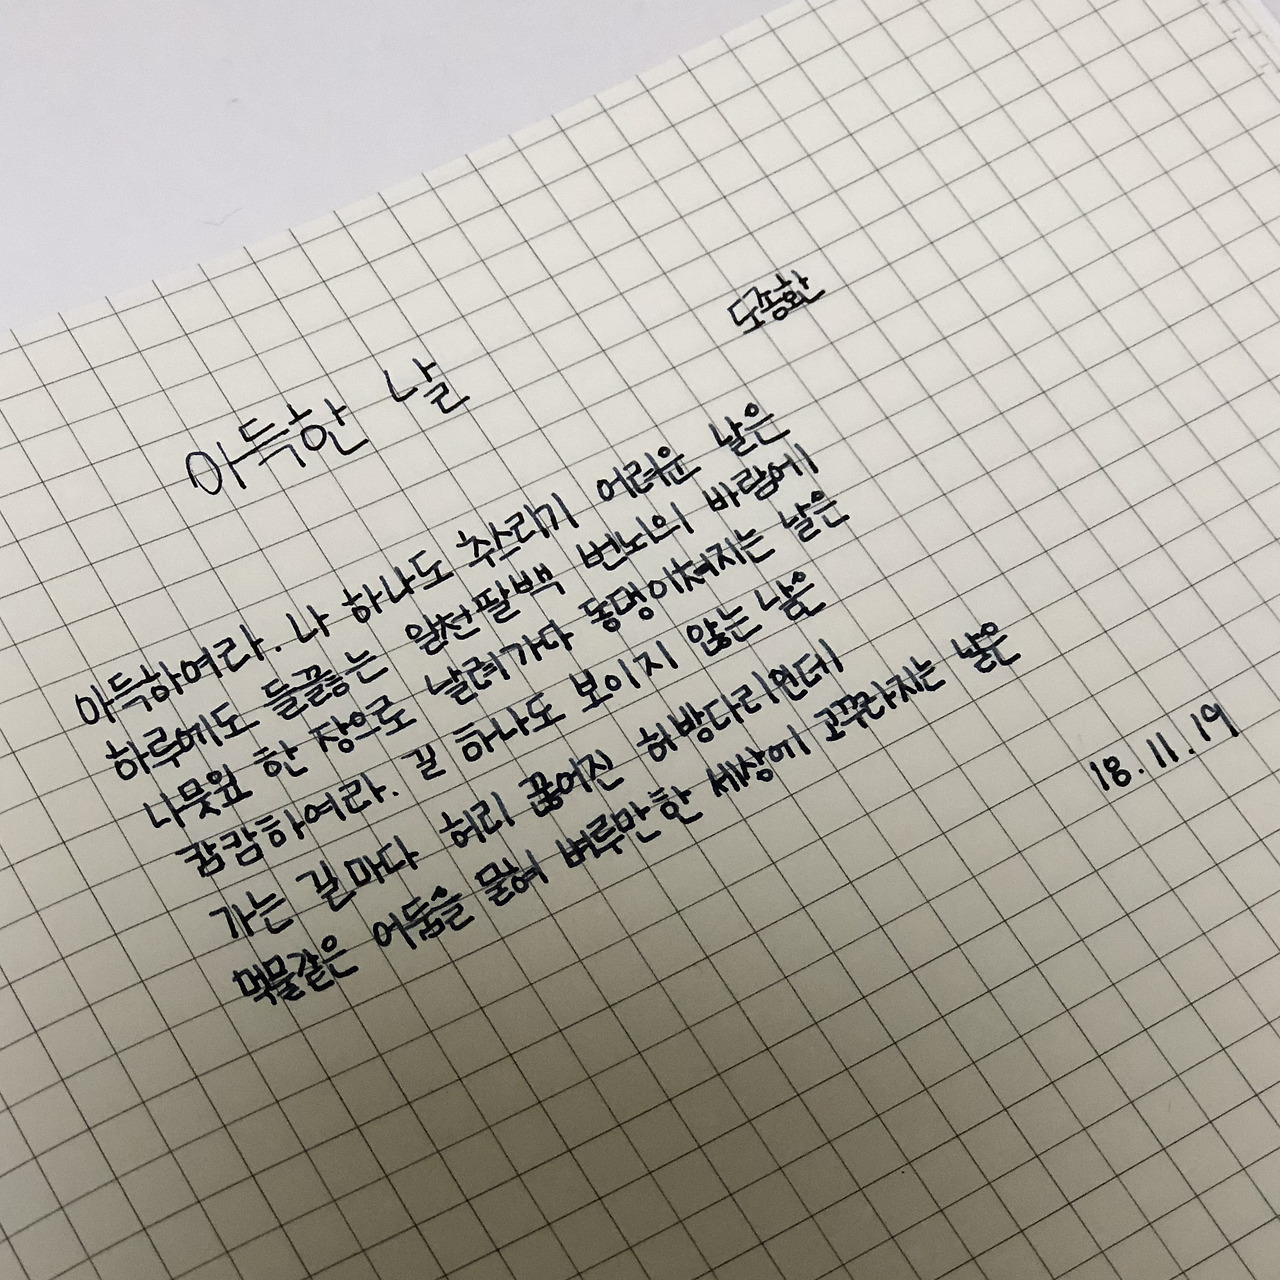 아득한 날
도종환
아득하여라. 나 하나도 추스리기 어려운 날은
하루에도 들끓는 일천팔백 번뇌의 바람에
나뭇잎 한 장으로 날려가다 동댕이쳐지는 날은
캄캄하여라. 길 하나도 보이지 않는 날은
가는 길마다 허리 끊어진 허방다리인데
먹물같은 어둠을 물혀 벼루만한 세상에 고꾸라지는 날은
18.11.19